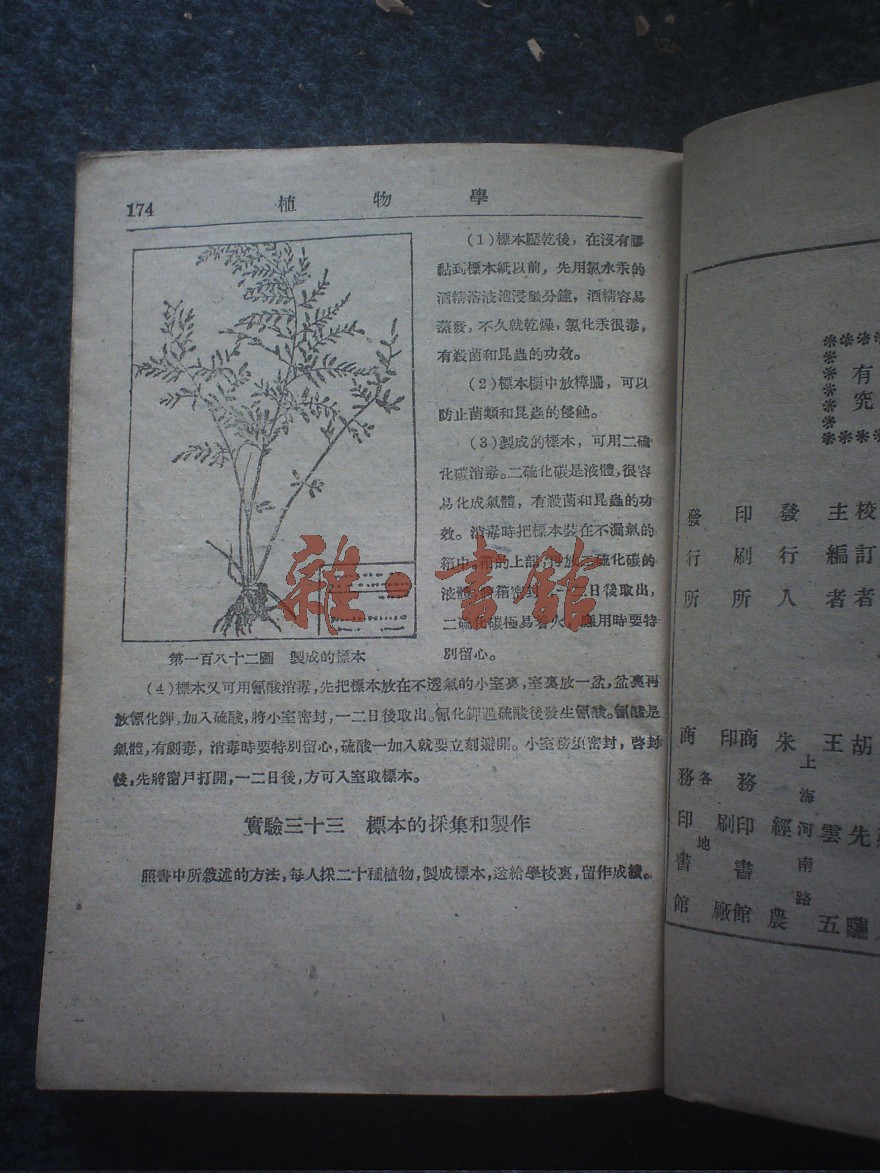 174
植物學
(1)標本壓乾後，在沒有膠
黏到標本紙以前，先用氯水汞的
酒精溶液泡浸數分鐘，酒精容易
蒸發，不久就乾燥，氯化汞很毒，
有殺菌和昆蟲的功效。
(2)標本櫥中放樟腦，可以
防止菌類和昆蟲的侵蝕。
(3)製成的標本，可用二硫
化碳消毒。二硫化碳是液體，很容
易化成氣體，有殺菌和昆蟲的功
效。消毒時把標本裝在不漏氣的
箱中。箱的上部，放二硫化碳的
液體，將箱密封，一二日後取出，
二硫化碳極易着火，應用時要特
別留心。
第一百八十二圖 製成的標本
(4)標本又可用氰酸消毒，先把標本放在不透氣的小室裏，室裏放一盆，盆裏再
放氰化鉀，加入硫酸，將小室密封，一二日後取出。氰化鉀遇硫酸後發生氰酸。氰酸是
氣體，有劇毒，消毒時要特別留心，硫酸一加入就要立刻避開。小室務須密封，啓封
後，先將窗戶打開，一二日後，方可入室取標本。
實驗三十三 標本的採集和製作
照書中所敘述的方法，每人採二十種植物，製成標本，送給學校裏，留作成績。
雜·書館
有
究
校訂者
主編者
發行人
印刷所
發行所
胡先
王雲五
朱經農
上海河南路
商務印書館
印刷廠
各地
商務印書館